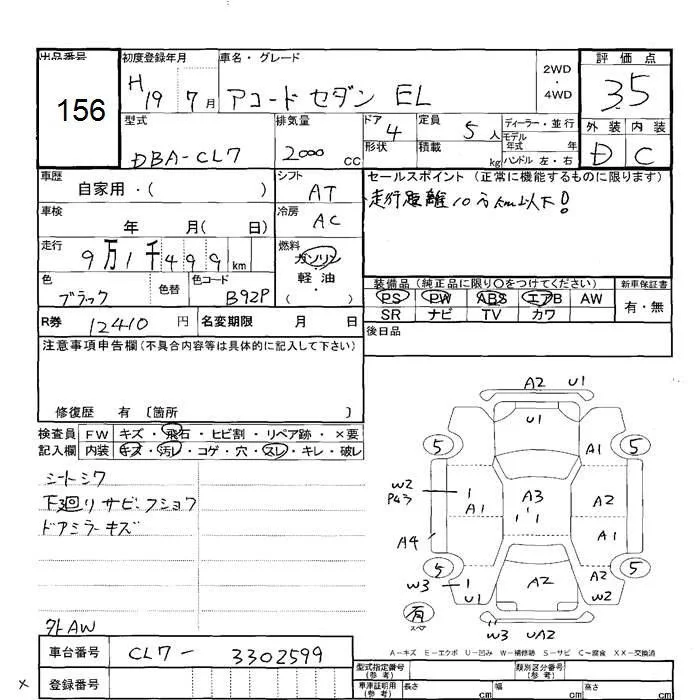 出品番号 初度登録年月 車名・グレード 2WD・4WD 評価点
156 H19 7月 アコードセダン EL 35
型式 排気量 ドア 定員 ディーラー・並行 外装 内装
DBA-CL7 2000 cc 4 5人 モデル年式 年 D C
形状 積載 kg ハンドル 左・右
車歴 シフト セールスポイント (正常に機能するものに限ります)
自家用・( ) AT 走行距離10万km以下!
車検 冷房
年 月( 日) AC
走行 燃料
9万1千499km ガソリン
軽・油
( )
色 色替 色コード 装備品(純正品に限り〇をつけてください) 新車保証書
ブラック B92P PS PW ABS エアB AW 有・無
SR ナビ TV カワ
R券 12410円 名変期限 月 日 後日品
注意事項申告欄(不具合内容等は具体的に記入して下さい)
修復歴 有 〔箇所 〕
検査員 FW キズ・飛石・ヒビ割・リペア跡・×要
記入欄 内装 キズ・汚レ・コゲ・穴・スレ・キレ・破レ
シートシワ
下廻リサビ・フショク
ドアミラーキズ
外AW
A2 U1
U1
5 A1 5
W2 1 A3 A2
P43 A1
A4 A1
5 A2 5
W3 1 U1 A2 W2
有
スペア
W3 UA2
A-キズ E-エクボ U-凹み W-補修跡 S-サビ C-腐食 XX-交換済
車台番号 CL7-3302599
型式指定番号(参考) 類別区分番号(参考)
× 登録番号
車庫証明用(参考) 長さ cm 幅 cm 高さ cm